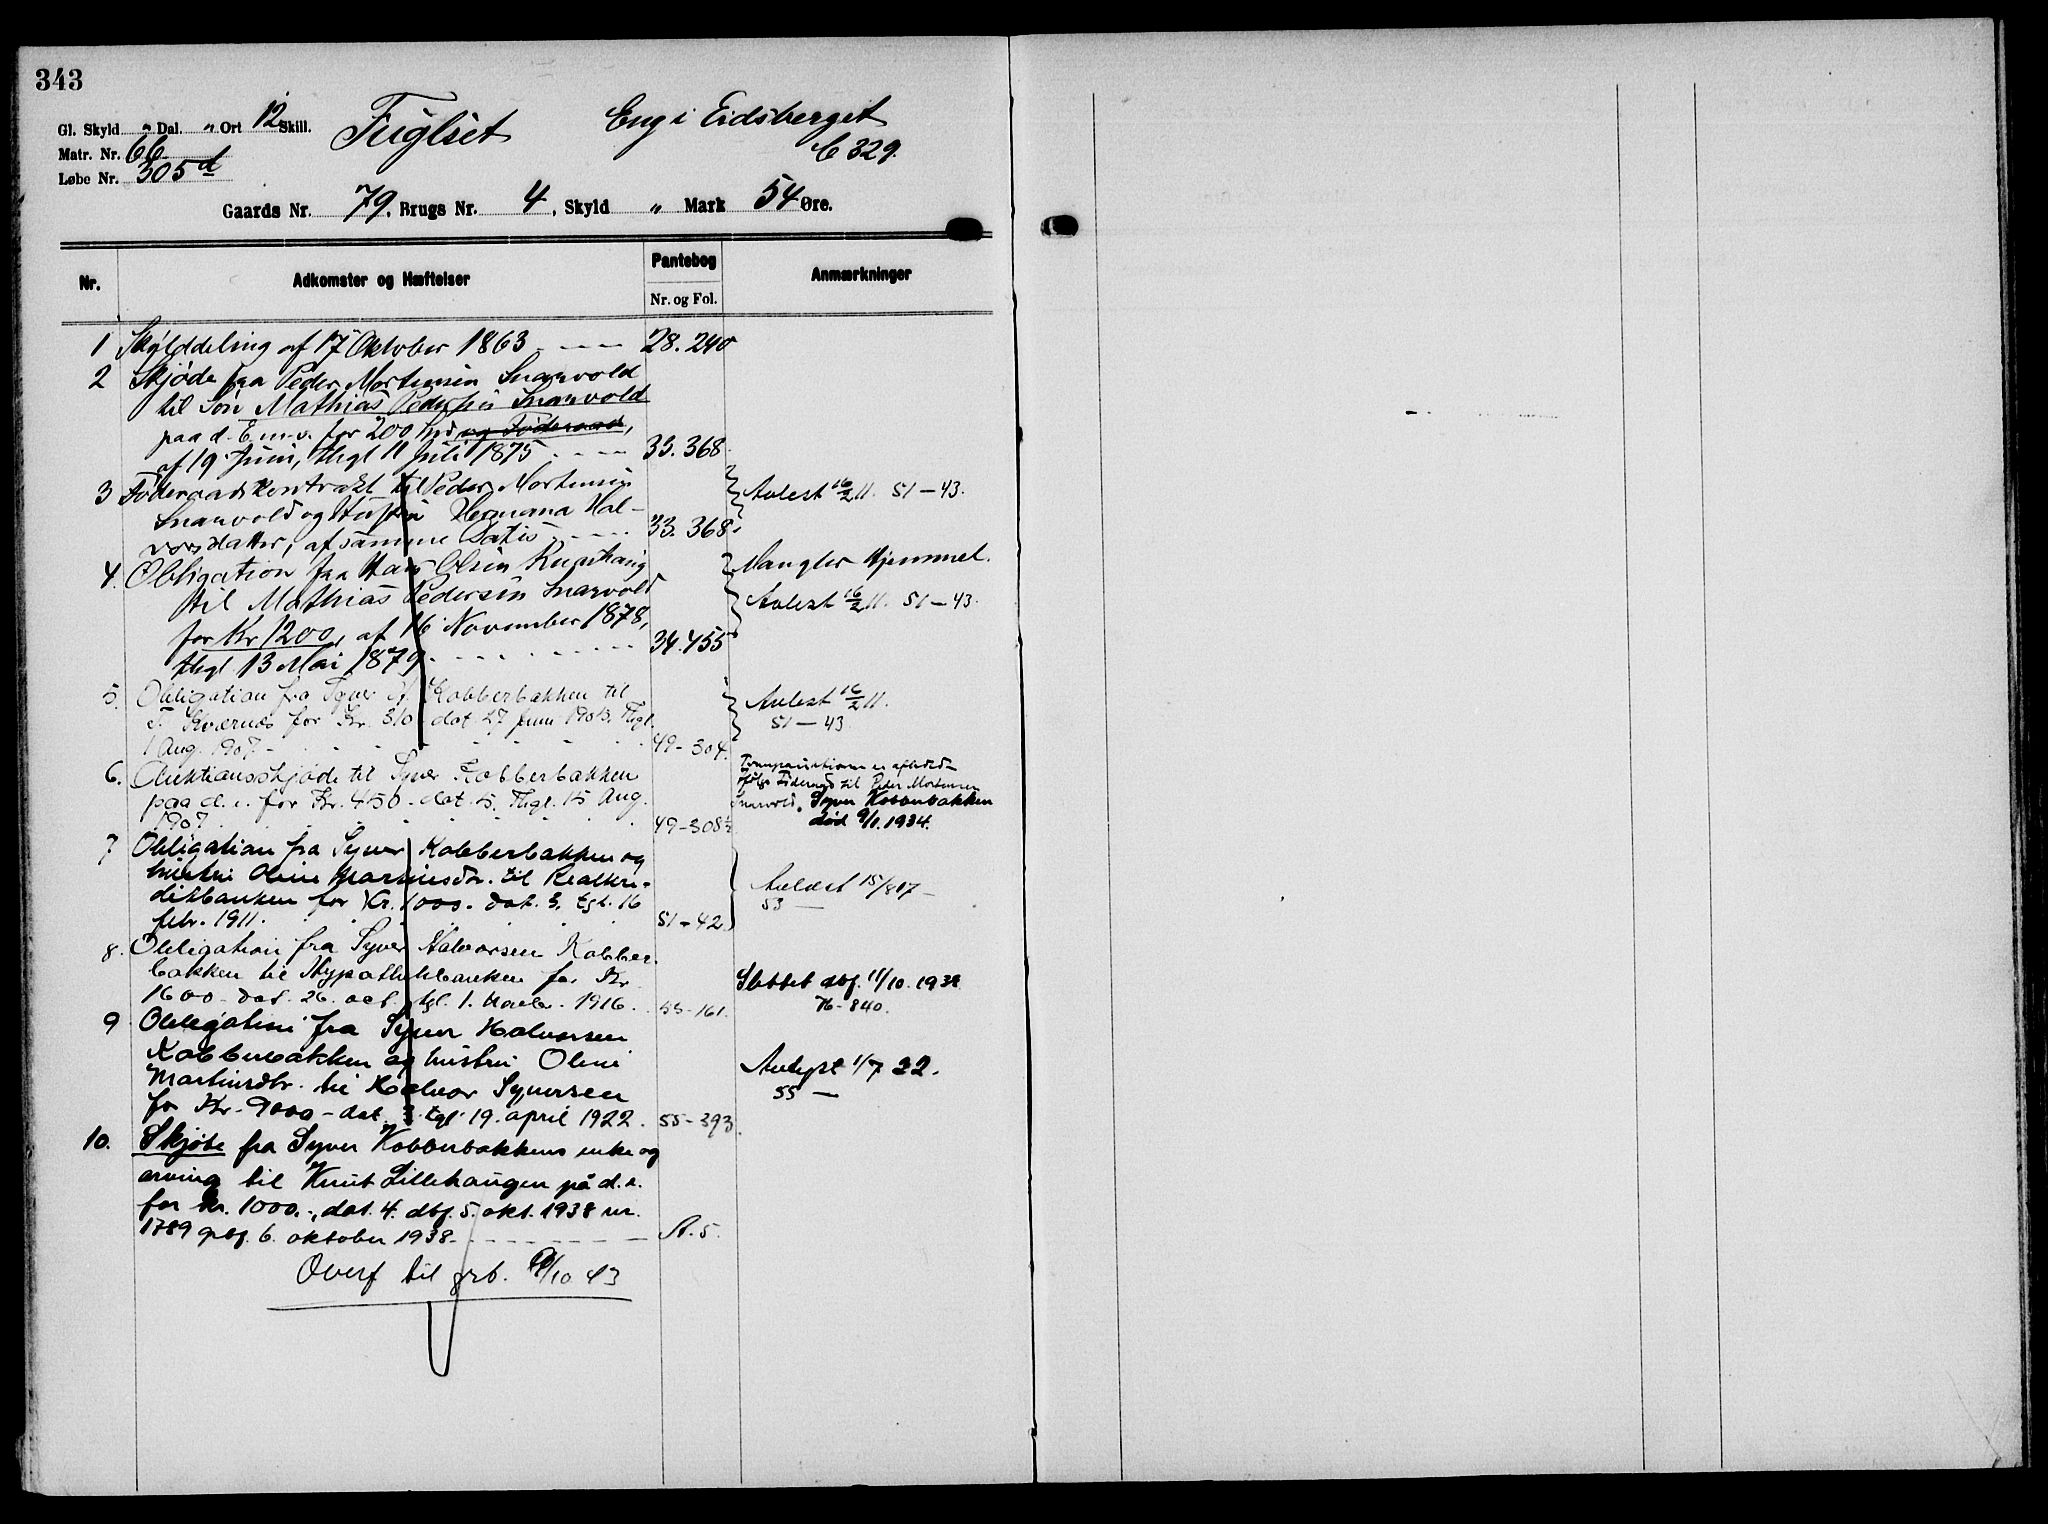 343
Gl. Skyld „ Dal. „ Ort 12 Skill.
Matr. Nr. 66
Løbe Nr. 305 d
Fuglset
Eng i Eidsberget
C 329.
Gaards Nr. 79, Brugs Nr. 4, Skyld „ Mark 54 Øre.
Nr.
Adkomster og Hæftelser
Pantebog
Nr. og Fol.
Anmærkninger
1 Skylddeling af 17 Oktober 1863 - - - - 28. 240
2 Skjøde fra Peder Mortensen Snarvold
til Søn Mathias Pedersen Snarvold
paa d. E. m. v. for 200 Spd og Føderaad,
af 19 Juni, thgl 11 Juli 1875 - - - - 33. 368.
3 Føderaadskontrakt til Peder Mortensen
Snarvold og Hustru Hermana Hal-
vorsdatter, af samme Datis - - - - 33. 368.
Avlest 16/2 11. 51 – 43.
4. Obligation fra Hans Olsen
til Mathias Pedersen Snarvold
for Kr 1200, af 16 November 1878,
thgl 13 Mai 1879 - - - - 34. 455
Mangler Hjemmel.
Avlest 16/2 11. 51 – 43.
5. Obligation fra Syver H. Kobberbakken til
Kværnæs for Kr. 310 dat 27 juni 1903. Thgl.
1 Aug. 1907. - 49 - 304.
Avlest 16/2 11.
51 – 43
6. Auktionsskjøde til Syver Kobberbakken
paa d. e. for Kr. 450 - dat. 5. Thgl. 15 Aug.
1907 49 - 308½
ifølge Føderaad til Peder Mortensen
Snarvold. Syver Kobberbakken
død 9/1. 1934.
7 Obligation fra Syver Kobberbakken og
hustru Oline Martinusdr. til Realkre-
ditbanken for Kr. 1000 - dat. 3. tgl. 16
febr. 1911. 51 - 42.
Avlæst 15/8 17 –
53 —
8. Obligation fra Syver Halvorsen Kobber-
bakken til Hypothekbanken for Kr
1600 - dat. 26. oct. tgl. 1. Novbr. 1916. 53 - 161.
Slettet dbf. 11/10. 1938
76 - 840.
9 Obligation fra Syver Halvorsen
Kobberbakken og hustru Oline
Martinsdtr. til Halvor Syversen
for Kr. 9000 - dat. 3. tgl. 19. april 1922. 55 - 393.
Avlyst 1/7 32.
55 —
10. Skjøte fra Syver Kobberbakkens enke og
arving til Knut Lillehaugen på d. e.
for kr. 1000.-, dat. 4. dbf. 5. okt. 1938 nr.
1789 gbf. 6. oktober 1938 - - - - A. 5.
Overf til grb. 9/10 43